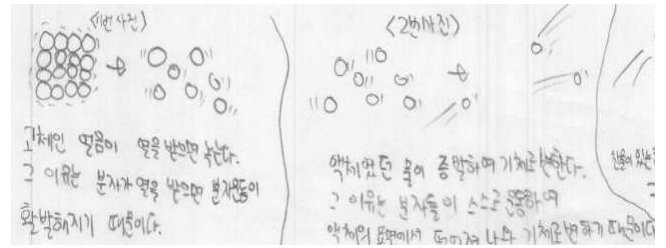 <1번사진>
고체인 얼음이 열을 받으면 녹는다.
그 이유는 분자가 열을 받으면 분자운동이
활발해지기 때문이다.
<2번사진>
액체였던 물이 증발하여 기체로 변한다.
그 이유는 분자들이 스스로 운동하여
액체의 표면에서 떨어져 나와 기체로 변하기 때문이다